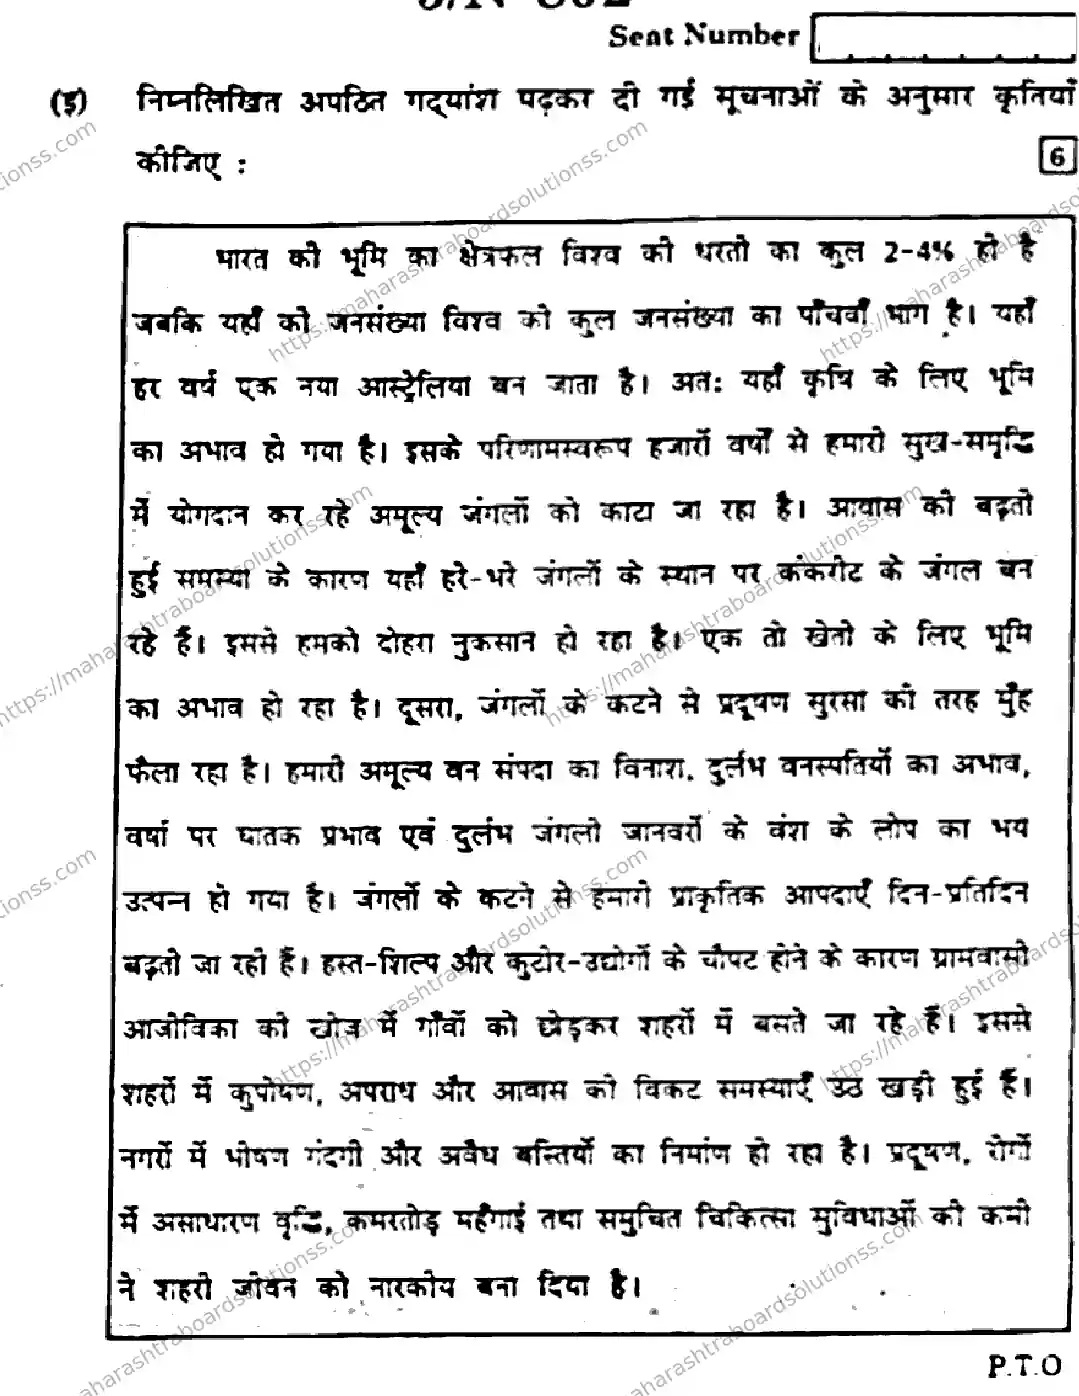 Seat Number
(इ) निम्नलिखित अपठित गद्यांश पढ़कर दी गई सूचनाओं के अनुसार कृतियाँ
कीजिए :
6
भारत की भूमि का क्षेत्रफल विश्व की धरती का कुल 2-4% ही है
जबकि यहाँ की जनसंख्या विश्व की कुल जनसंख्या का पाँचवाँ भाग है। यहाँ
हर वर्ष एक नया आस्ट्रेलिया बन जाता है। अतः यहाँ कृषि के लिए भूमि
का अभाव हो गया है। इसके परिणामस्वरूप हजारों वर्षों से हमारी सुख-समृद्धि
में योगदान कर रहे अमूल्य जंगलों को काटा जा रहा है। आवास की बढ़ती
हुई समस्या के कारण यहाँ हरे-भरे जंगलों के स्थान पर कंकरीट के जंगल बन
रहे हैं। इससे हमको दोहरा नुकसान हो रहा है। एक तो खेती के लिए भूमि
का अभाव हो रहा है। दूसरा, जंगलों के कटने से प्रदूषण सुरसा की तरह मुँह
फैला रहा है। हमारी अमूल्य वन संपदा का विनाश, दुर्लभ वनस्पतियों का अभाव,
वर्षा पर घातक प्रभाव एवं दुर्लभ जंगली जानवरों के वंश के लोप का भय
उत्पन्न हो गया है। जंगलों के कटने से हमारी प्राकृतिक आपदाएँ दिन-प्रतिदिन
बढ़ती जा रही हैं। हस्त-शिल्प और कुटीर-उद्योगों के चौपट होने के कारण ग्रामवासी
आजीविका की खोज में गाँवों को छोड़कर शहरों में बसते जा रहे हैं। इससे
शहरों में कुपोषण, अपराध और आवास की विकट समस्याएँ उठ खड़ी हुई हैं।
नगरों में भीषण गंदगी और अवैध बस्तियों का निर्माण हो रहा है। प्रदूषण, रोगों
में असाधारण वृद्धि, कमरतोड़ महँगाई तथा समुचित चिकित्सा सुविधाओं की कमी
ने शहरी जीवन को नारकीय बना दिया है।
P.T.O
https://maharashtraboardsolutionss.com